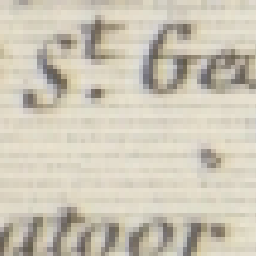 St. Geo
atoor